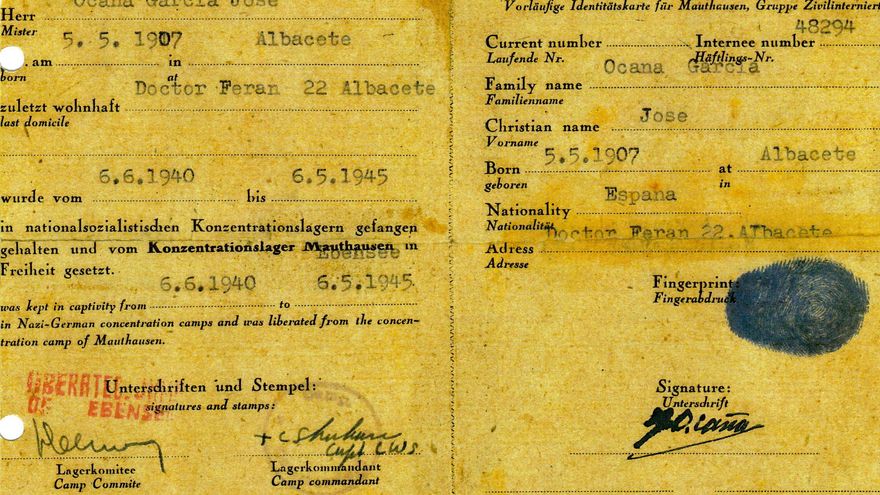 Ocana Garcia Jose
Herr
Mister
5. 5. 1907 Albacete
am in
born at
Doctor Feran 22 Albacete
zuletzt wohnhaft
last domicile
6.6.1940 6.5.1945
wurde vom bis
in nationalsozialistischen Konzentrationslagern gefangen
gehalten und vom Konzentrationslager Mauthausen in
Ebensee
Freiheit gesetzt.
6.6.1940 6.5.1945
was kept in captivity from to
in Nazi-German concentration camps and was liberated from the concen-
tration camp of Mauthausen.
LIBERATED
OF EBENSEE
Unterschriften und Stempel:
signatures and stamps:
Lagerkomitee
Camp Commite
Lagerkommandant
Camp commandant
Vorläufige Identitätskarte für Mauthausen, Gruppe Zivilinterniert
48294
Current number Internee number
Laufende Nr. Häftlings-Nr.
Ocana Garcia
Family name
Familienname
Jose
Christian name
Vorname
5.5.1907 Albacete
Born at
geboren in
Espana
Nationality
Nationalität
Doctor Feran 22.Albacete
Adress
Adresse
Fingerprint:
Fingerabdruck
Signature:
Unterschrift
J.Ocaña